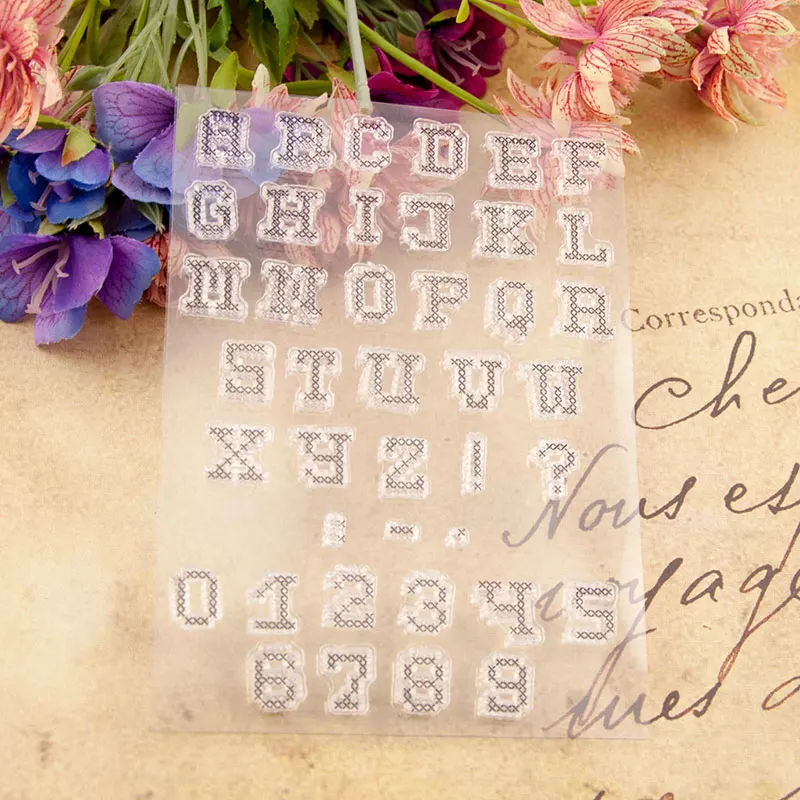 A B C D E F
G H I J K L
M N O P Q R
S T U V W
X Y Z ! ?
: - .
0 1 2 3 4 5
6 7 8 9
Correspond
Che
Nous
voyage